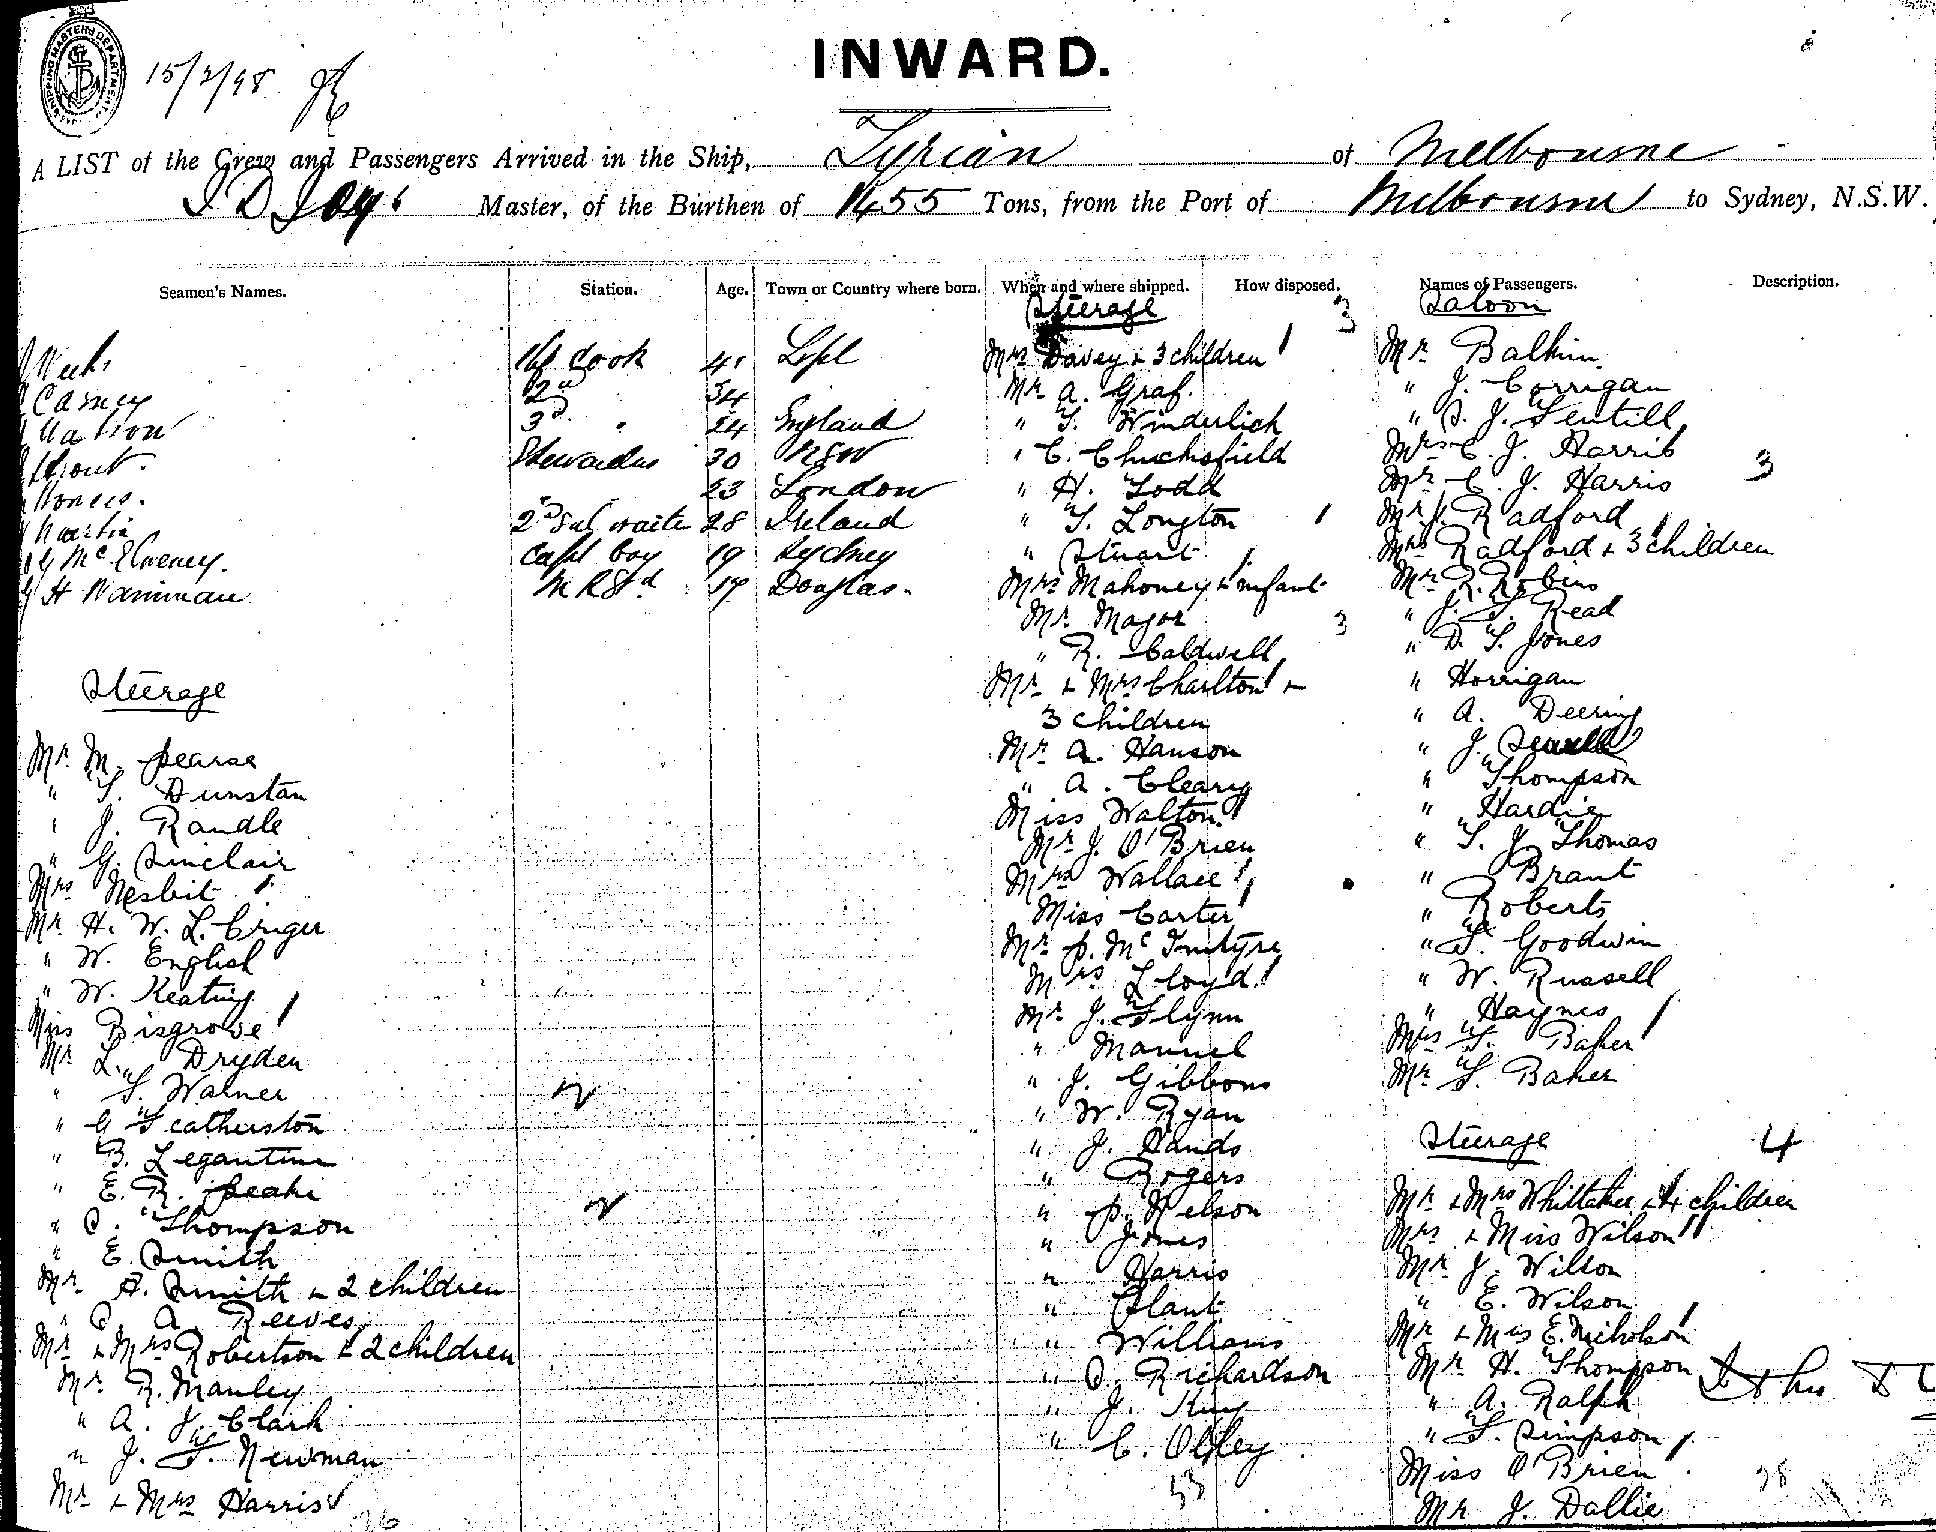 15/2/98
INWARD.
A LIST of the Crew and Passengers Arrived in the Ship, Tyrian of Melbourne
Master, of the Burthen of 1455 Tons, from the Port of Melbourne to Sydney, N.S.W.
Seamen's Names. Station. Age. Town or Country where born. When and where shipped. How disposed. Names of Passengers. Description.
1st Cook 41 Lpl
Carney 2nd 34
3d " 24 England
30 NSW
23 London
Martin 2d Sal waiter 28 Ireland
McElveney. Capt boy 19 Sydney
H Warriman M R Std 17 Douglas.
Steerage
Mr. M. Pearse
" T. Dunstan
" J. Randle
" G. Sinclair
Mrs Nesbit
Mr. H. W. L. Criger
" W. English
" W. Keating
Miss Bisgrove
Mr L. Dryden
" S. Warner
" G Featherston
" B. Legantine
" E. R. Peake
" Thompson
" E. Smith
Mr. A. Smith + 2 children
" A. Reeves
Mr + Mrs Robertson + 2 children
Mr. R. Manley
" A. J. Clark
" J. F. Newman
Mr + Mrs Harris
Steerage 3
Mrs Davey + 3 children
Mr A. Graf.
" Winderlich
" C. Chuchsfield
" H. Todd
" T. Longton
" Stuart
Mrs Mahoney + infant
Mr. Major 3
" R. Caldwell
Mr + Mrs Charlton +
3 children
Mr. A. Hanson
" A. Cleary
Miss Walton
Mr. J. O'Brien
Mrs Wallace
Miss Carter
Mr. P. McIntyre
Mrs Lloyd
Mr. J. Flynn
" Manuel
" J. Gibbons
" W. Ryan
" J. Hands
" Rogers
" P. Nelson
" Jones
" Harris
" Plant
" Williams
" Richardson
" J. King
" C. Obley
53
Saloon
Mr Balkin
" J. Corrigan
" S. J. Fentill
Mrs C. J. Harris
Mr. C. J. Harris 3
Mr. J. Radford
Mrs Radford + 3 children
Mr R. Robins
" J. F. Read
" D. T. Jones
" Horrigan
" A. Deering
" J. Sewell
" Thompson
" Hardie
" T. J. Thomas
" Brant
" Roberts
" F. Goodwin
" W. Russell
" Haynes
Mrs T. Baker
Mr T. Baker
Steerage 4
Mr + Mrs Whittaker + 4 children
Mrs + Miss Wilson
Mr J. Wilson
" E. Wilson
Mr + Mrs E. Nicholson
Mr H. Thompson
" A. Ralph
" F. Simpson
Miss O'Brien 28
Mr J. Dallie